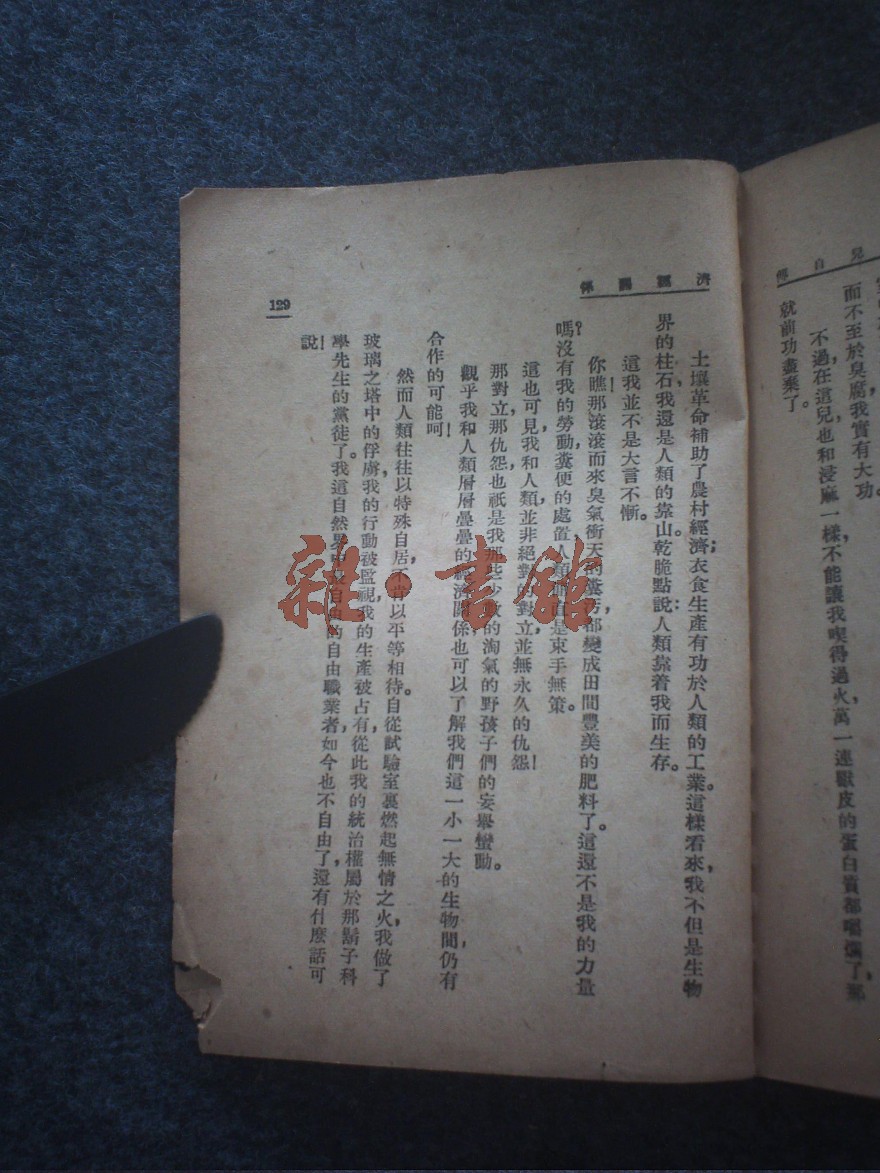 兒自傳
而不至於臭腐我實有大功。
不過在這兒也和浸麻一樣,不能讓我喫得過火,萬一連獸皮的蛋白質都嚼爛了,那
就前功盡棄了。
濟經關係
土壤革命補助了農村經濟;衣食生產有功於人類的工業。這樣看來,我不但是生物
界的柱石,我還是人類的靠山,乾脆點說:人類靠着我而生存。
這我並不是大言不慚。
你瞧!那滾滾而來臭氣衝天的糞污都變成田間豐美的肥料了。這還不是我的力量
嗎?沒有我的勞動,糞便的處置,人類簡直是束手無策。
這也可見我和人類,並非絕對的對立,並無永久的仇怨!
那對立,那仇怨,也祇是我那些少數的淘氣的野孩子們的妄舉蠻動。
觀乎我和人類層層疊疊的經濟關係,也可以了解我們這一小一大的生物間,仍有
合作的可能呵!
然而人類往往以特殊自居,不肯以平等相待。自從試驗室裏燃起無情之火,我做了
玻璃之塔中的俘虜,我的行動被監視,我的生產被占有,從此我的統治權屬於那鬍子科
學先生的黨徒了。我這自然界中最自由的自由職業者,如今也不自由了,還有什麽話可
說!
129
雜·書館